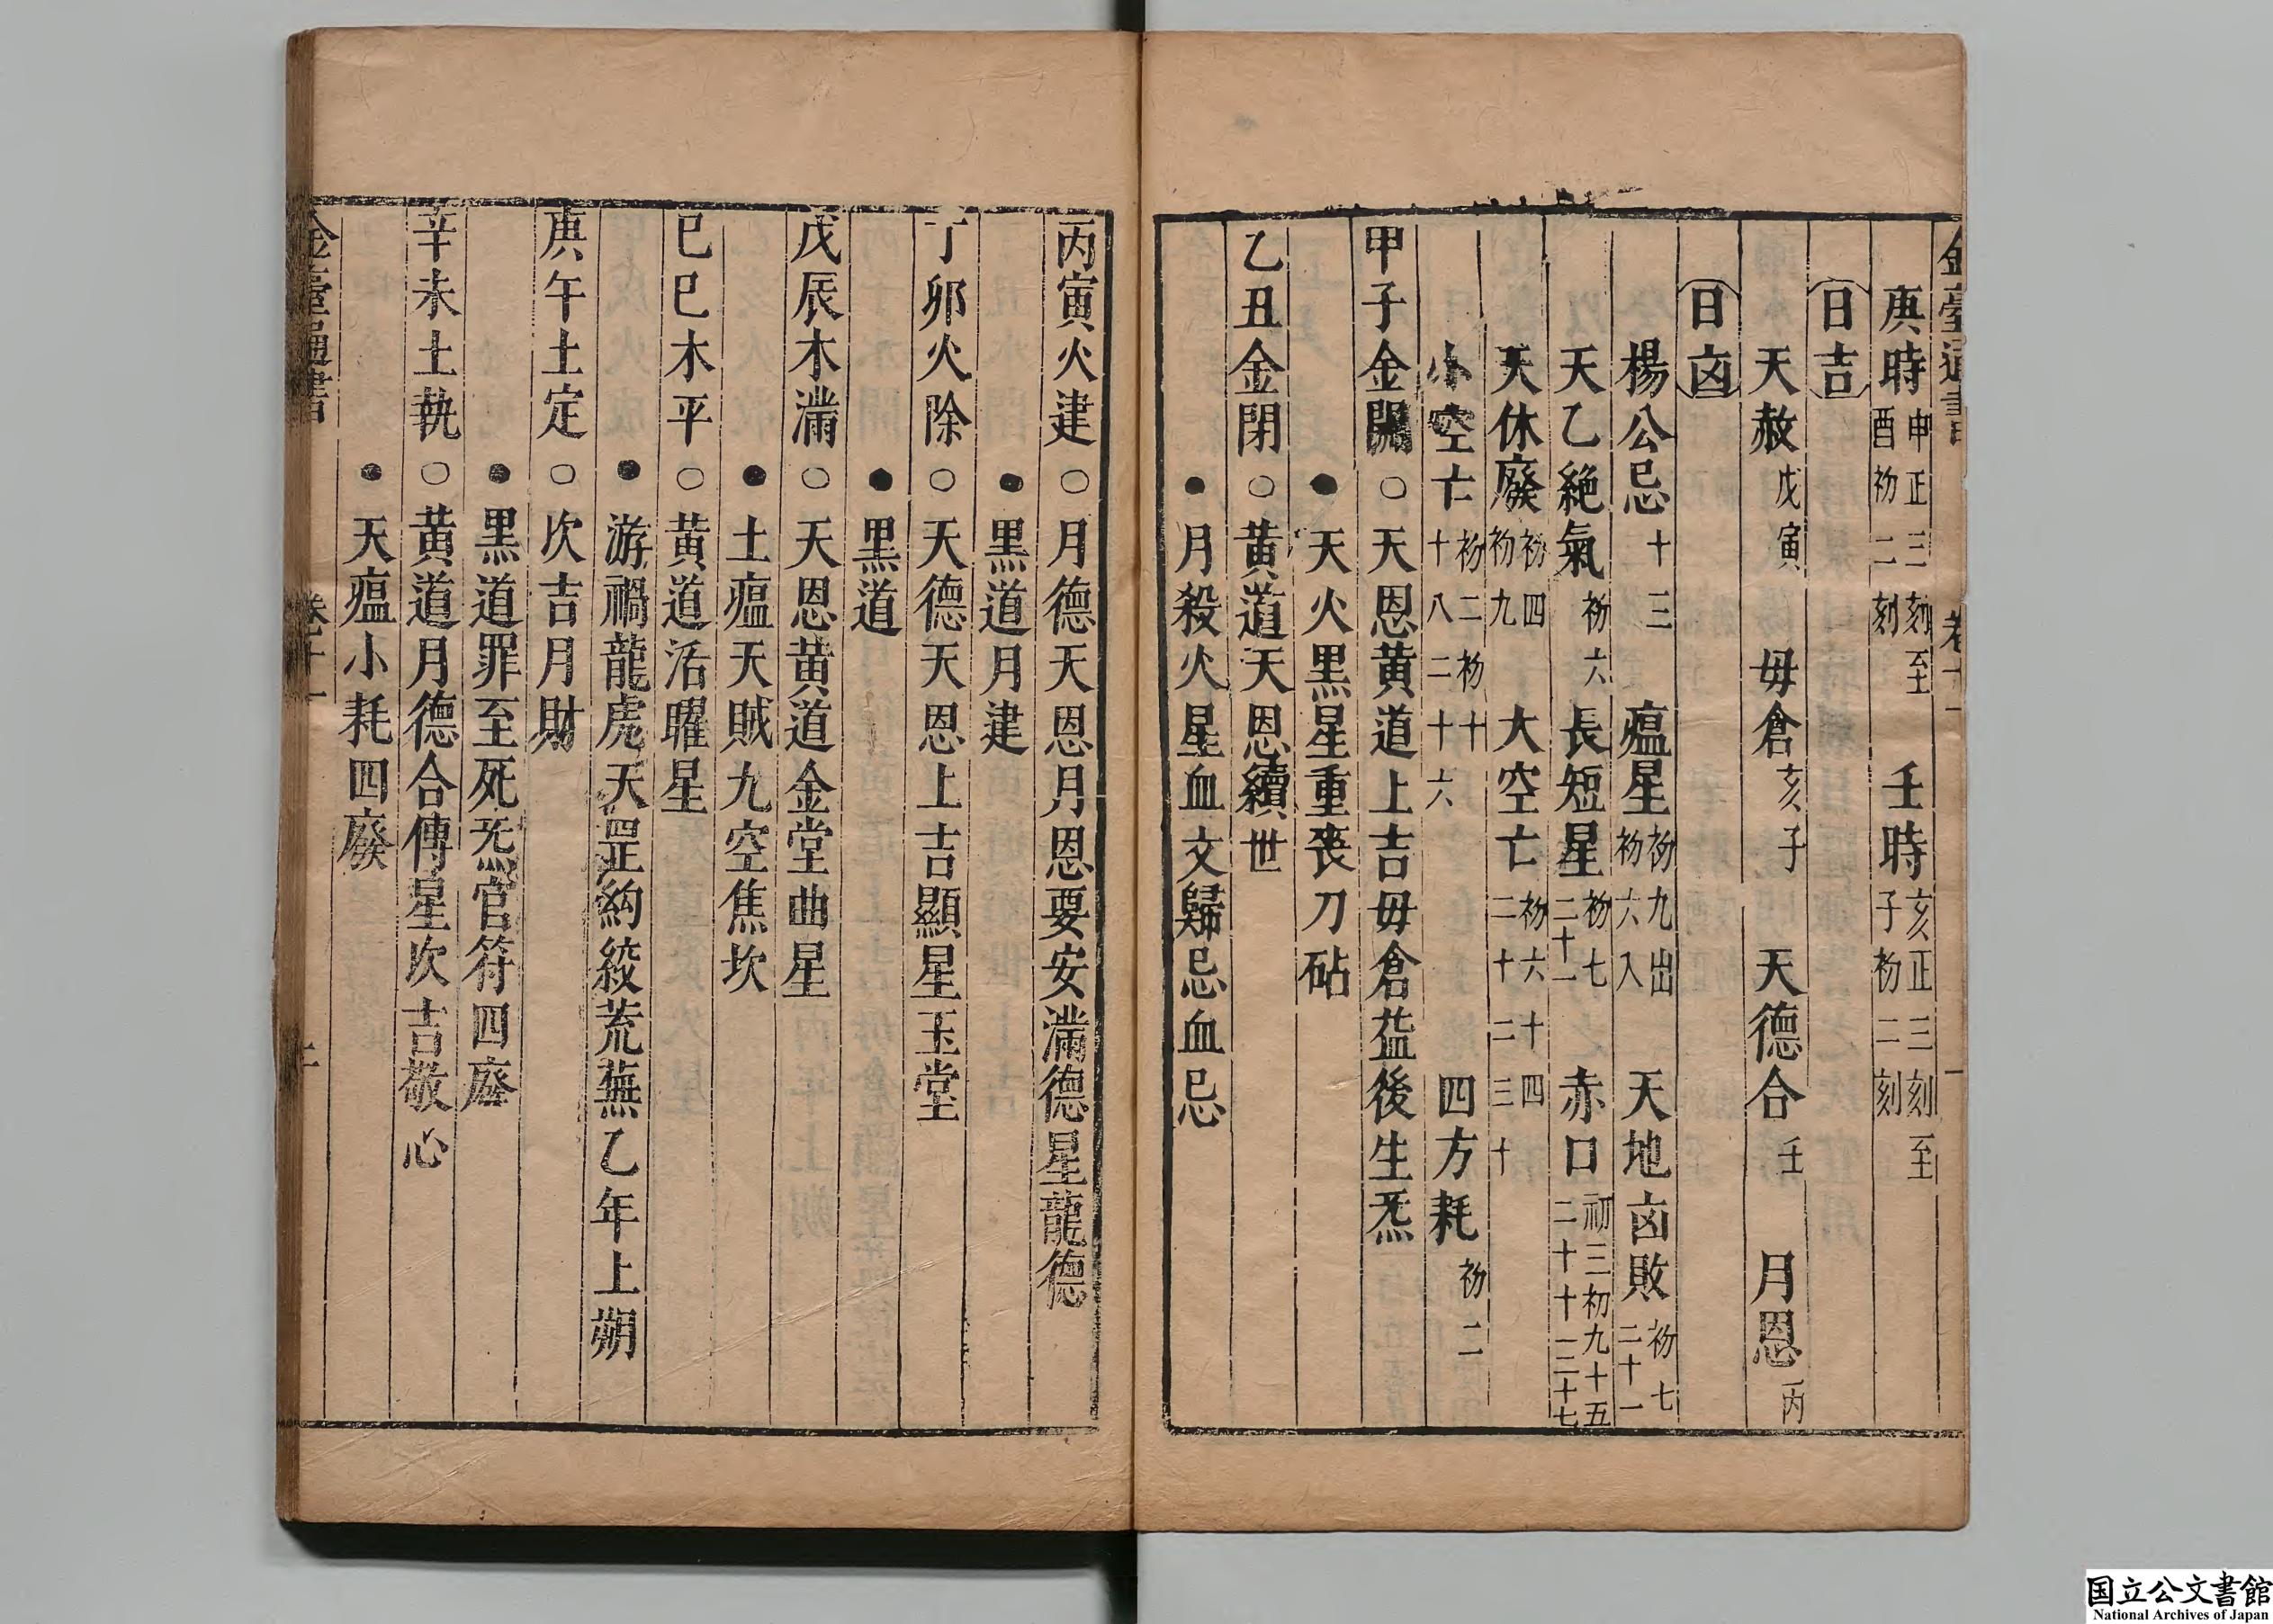 金臺通書 卷十一 一
庚時申正三刻至酉初二刻 壬時亥正三刻至子初二刻
日吉
天赦戊寅 毋倉亥子 天德合壬 月恩丙
日凶
楊公忌十三 瘟星初九出初六入 天地凶敗初七二十一
天乙絕氣初六 長短星初七二十一 赤口初三初九十五二十十二二十七
天休廢初四初九 大空亡初六十四二十二三十
小空亡初二初十十八二十六 四方耗初二
甲子金開○天恩黄道上吉毋倉益後生炁
●天火黒星重喪刀砧
乙丑金閉○黄道天恩續世
●月殺火星血支歸忌血忌
丙寅火建○月德天恩月恩要安滿德星龍德
●黒道月建
丁卯火除○天德天恩上吉顯星玉堂
●黒道
戊辰木滿○天恩黄道金堂曲星
●土瘟天賊九空焦坎
己巳木平○黄道活曜星
●游禍龍虎天罡紏絞荒蕪乙年上朔
庚午土定○次吉月財
●黒道罪至死炁官符四廢
辛未土執○黄道月德合傳星次吉敬心
●天瘟小耗四廢
金臺通書 卷十一 二
国立公文書館
National Archives of Japan